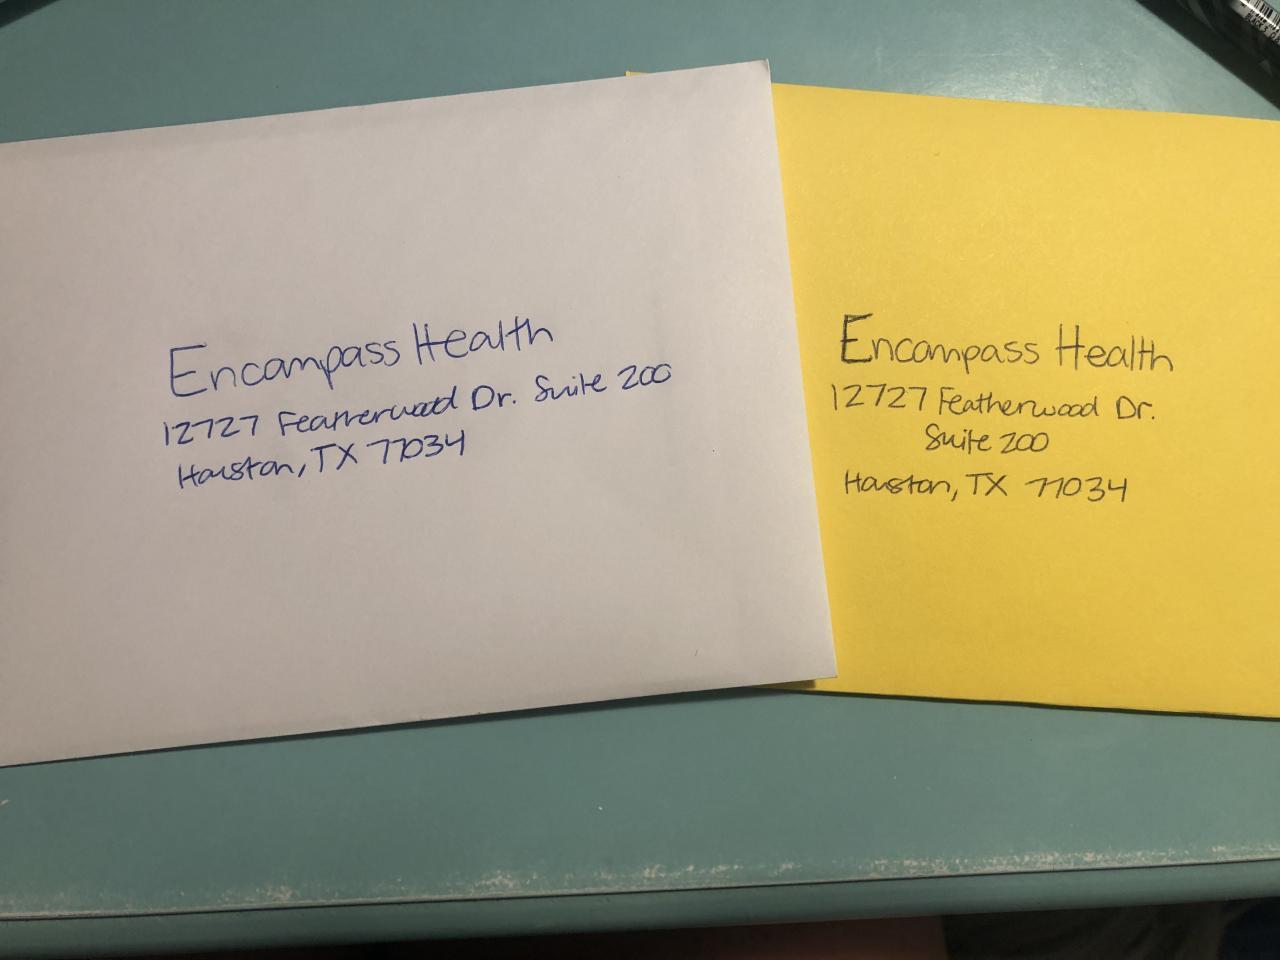 Encompass Health
12727 Featherwood Dr. Suite 200
Houston, TX 77034
Encompass Health
12727 Featherwood Dr.
Suite 200
Houston, TX 77034